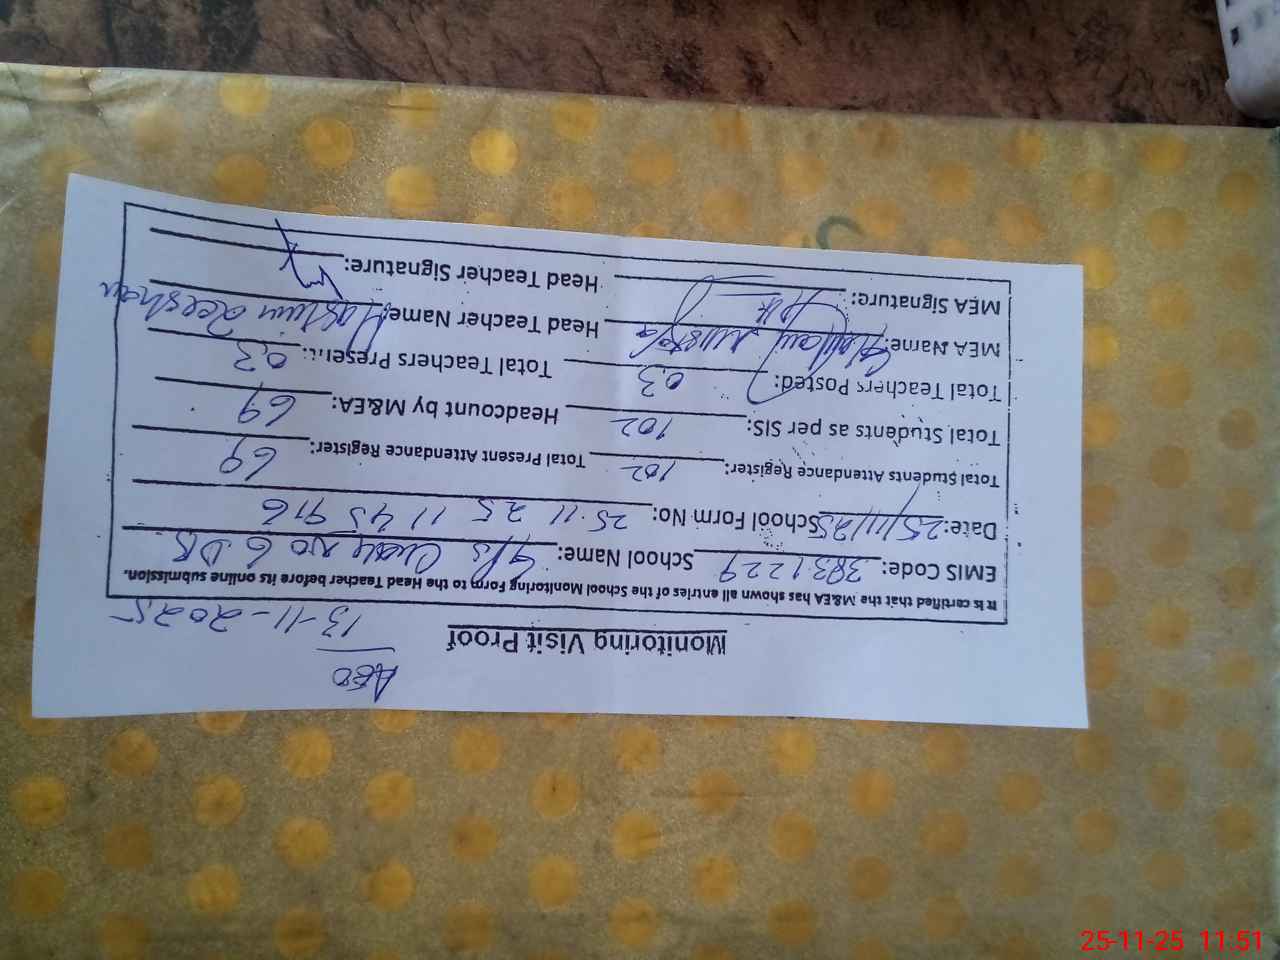 AEO
13-11-2025
Monitoring Visit Proof
It is certified that the M&EA has shown all entries of the School Monitoring Form to the Head Teacher before its online submission.
EMIS Code: 38331229 School Name: G/s Chak No 6 DB
Date: 25/11/25 School Form No: 25 11 25 11 45 916
Total Students Attendance Register: 102 Total Present Attendance Register: 69
Total Students as per SIS: 102 Headcount by M&EA: 69
Total Teachers Posted: 03 Total Teachers Present: 03
MEA Name: Head Teacher Name:
MEA Signature: Head Teacher Signature:
25-11-25 11:51